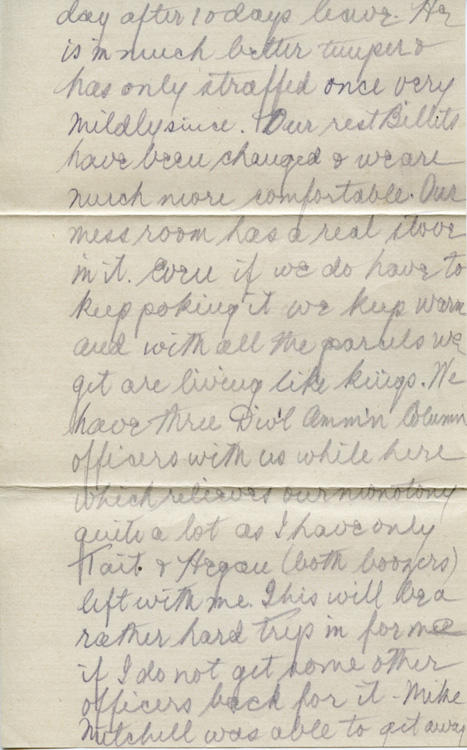 day after 10 days leave. He
is in much better temper &
has only straffed once very
mildly since. Our rest Billits
have been changed & we are
much more comfortable. Our
mess room has a real stove
in it. Even if we do have to
keep poking it we keep warm
and with all the parcels we
get are living like kings. We
have three Div'l Amm'n Column
officers with us while here
which relieves our monotony
quite a lot as I have only
Tait & Hegan (both boozers)
left with me. This will be a
rather hard trip in for me
if I do not get some other
officers back for it - Mike
Mitchell was able to get away